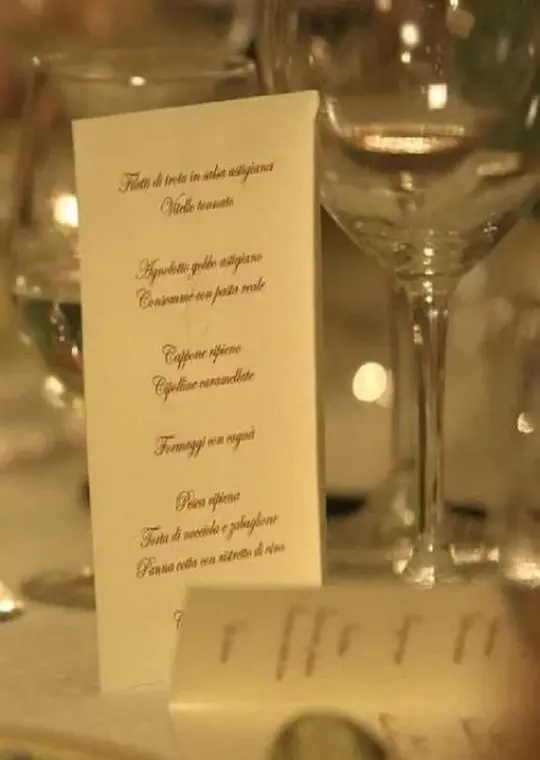 Filetti di trota in salsa astigiana
Vitello tonnato
Agnolotto gobbo astigiano
Consommé con pasta reale
Cappone ripieno
Cipolline caramellate
Formaggi con cugnà
Pesca ripiena
Torta di nocciola e zabaglione
Panna cotta con ristretto di vino